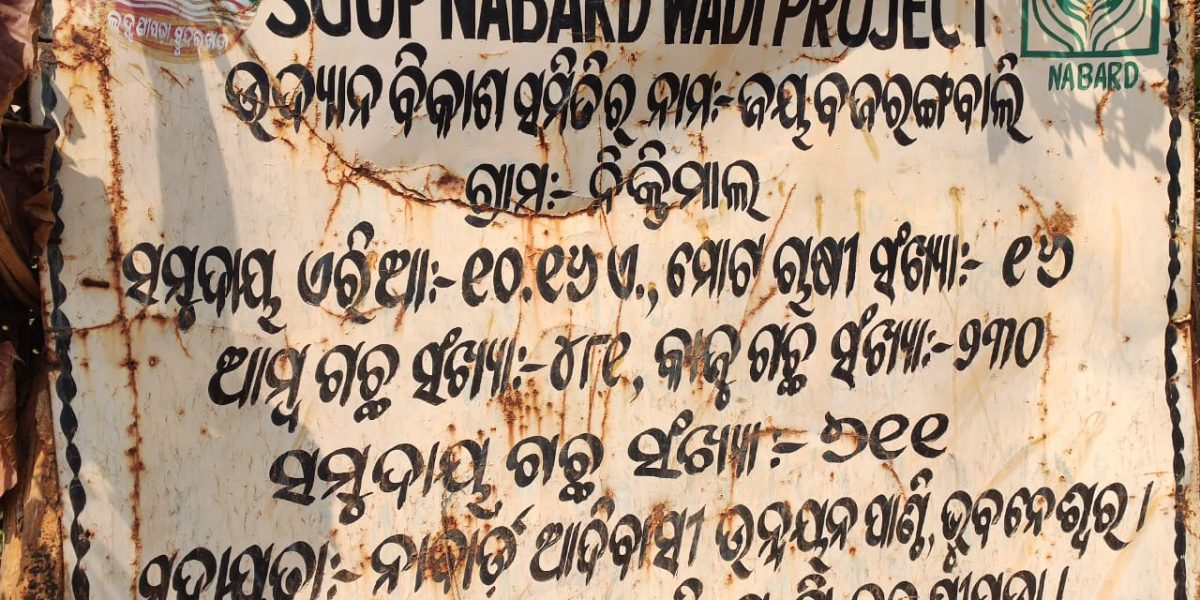 SGUP NABARD WADI PROJECT
NABARD
ଉଦ୍ୟାନ ବିକାଶ ସମିତିର ନାମଃ- ଜୟ ବଜରଙ୍ଗବାଲି
ଗ୍ରାମଃ- ଦିକ୍ତିମାଲ
ସମୁଦାୟ ଏରିଆଃ-୧୦.୧୬ ଏ., ମୋଟ ଚାଷୀ ସଂଖ୍ୟାଃ- ୧୬
ଆମ୍ବ ଗଛ ସଂଖ୍ୟାଃ-୪୮୧, କାଜୁ ଗଛ ସଂଖ୍ୟାଃ-୨୩୦
ସମୁଦାୟ ଗଛ ସଂଖ୍ୟାଃ- ୭୧୧
ସହାୟତାଃ- ନାବାର୍ଡ ଆଦିବାସୀ ଉନ୍ନୟନ ପାଣ୍ଠି, ଭୁବନେଶ୍ୱର।